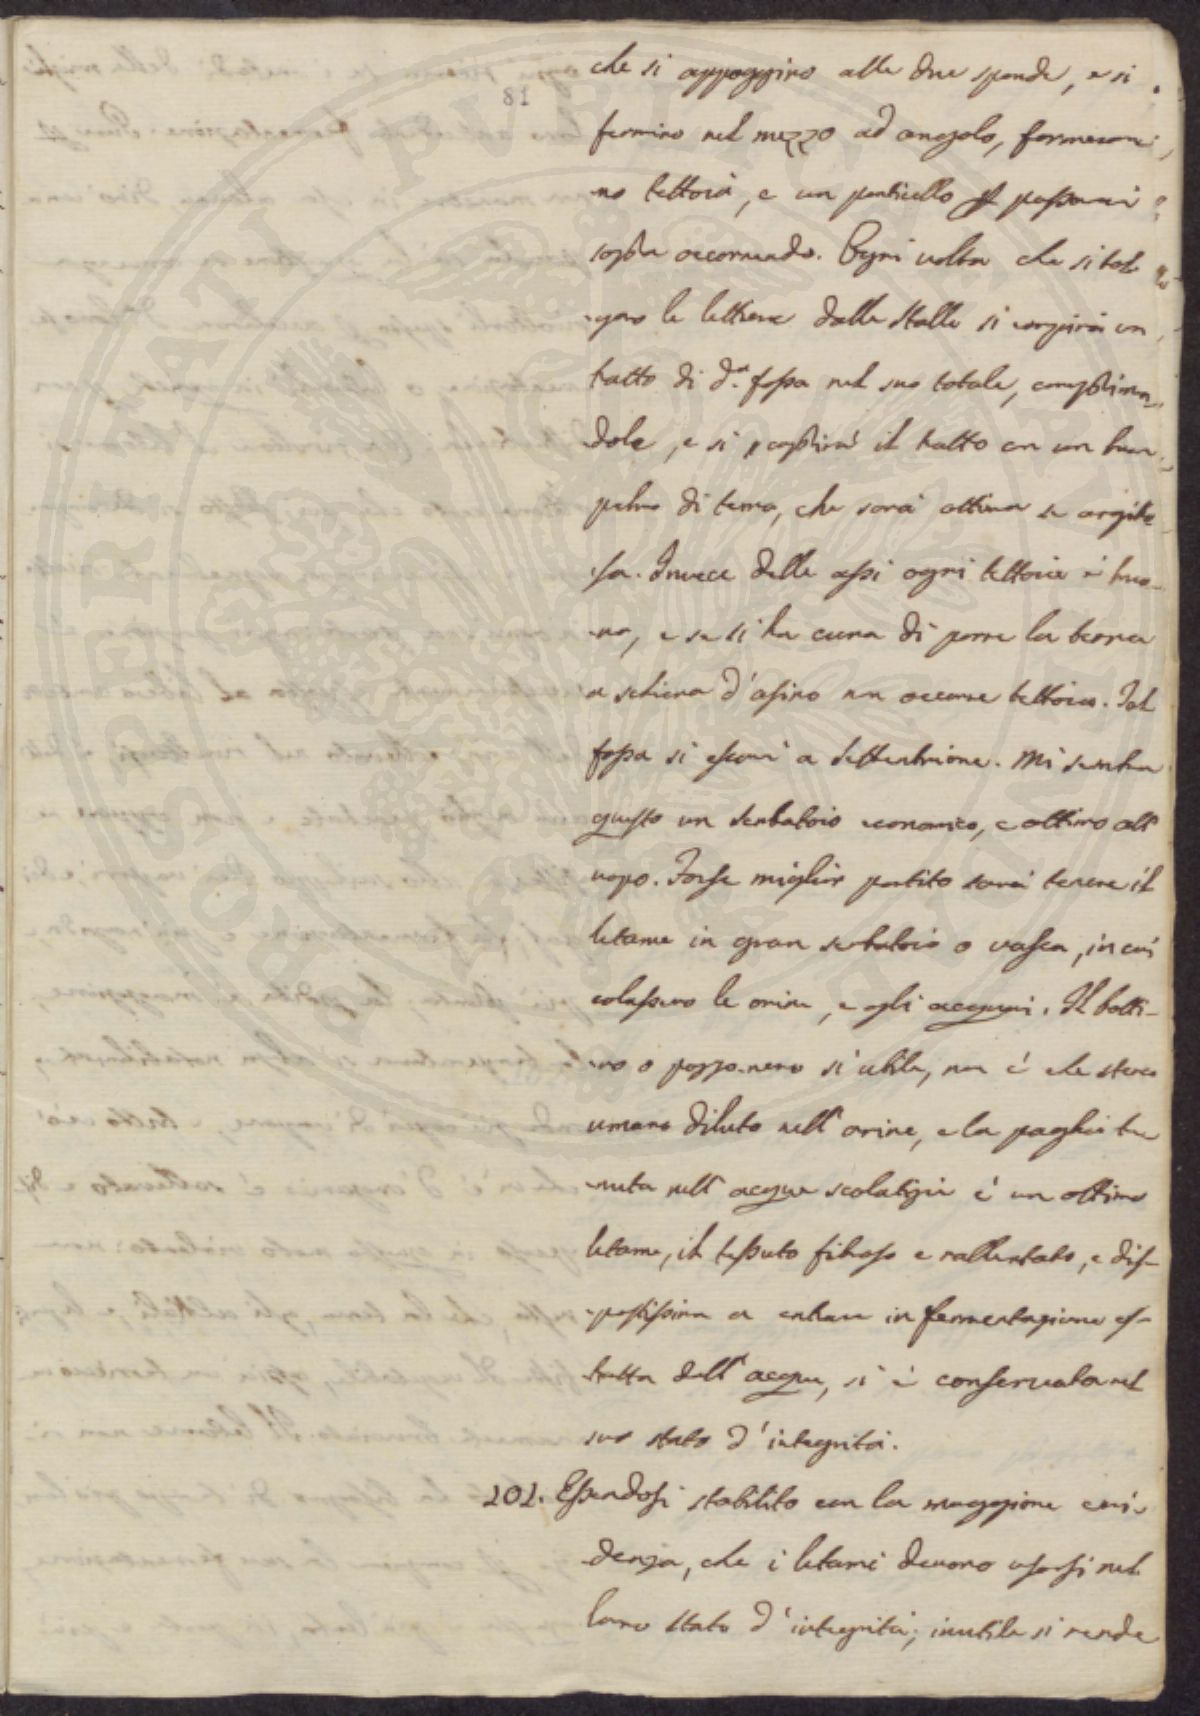 81
che si appoggino alle due sponde, e si
fermino nel mezzo ad angolo, formeran
no tettoia, e un ponticello p passarvi
sopra occorrendo. Ogni volta che si tol
gono le lettiere dalle stalle si empirà un
tratto di d.a fossa nel suo totale, comprimen-
dole, e si coprirà il tratto con un buon
palmo di terra, che sarà ottima se argilo
sa. Invece delle assi ogni tettoia è buo-
na, e se si ha cura di porre la terra
a schiena d'asino non occorre tettoia. Tal
fossa si escavi a settentrione. Mi sembra
questo un serbatoio economico, e ottimo all'
uopo. Forse miglior partito sarà tenere il
letame in gran serbatoio o vasca, in cui
colassero le orine, e gli acquai. Il botti-
no o pozzo nero sì utile, non è che sterco
umano diluto nell'orine, e la paglia te
nuta nell'acqua scolatizia è un ottimo
letame, il tessuto fibroso e rallentato, e dis-
postissimo a entrare in fermentazione es-
tratta dall'acqua, si è conservata nel
suo stato d'integrità.
202. Essendosi stabilito con la maggiore evi-
denza, che i letami devono usarsi nel
loro stato d'integrità; inutile si rende